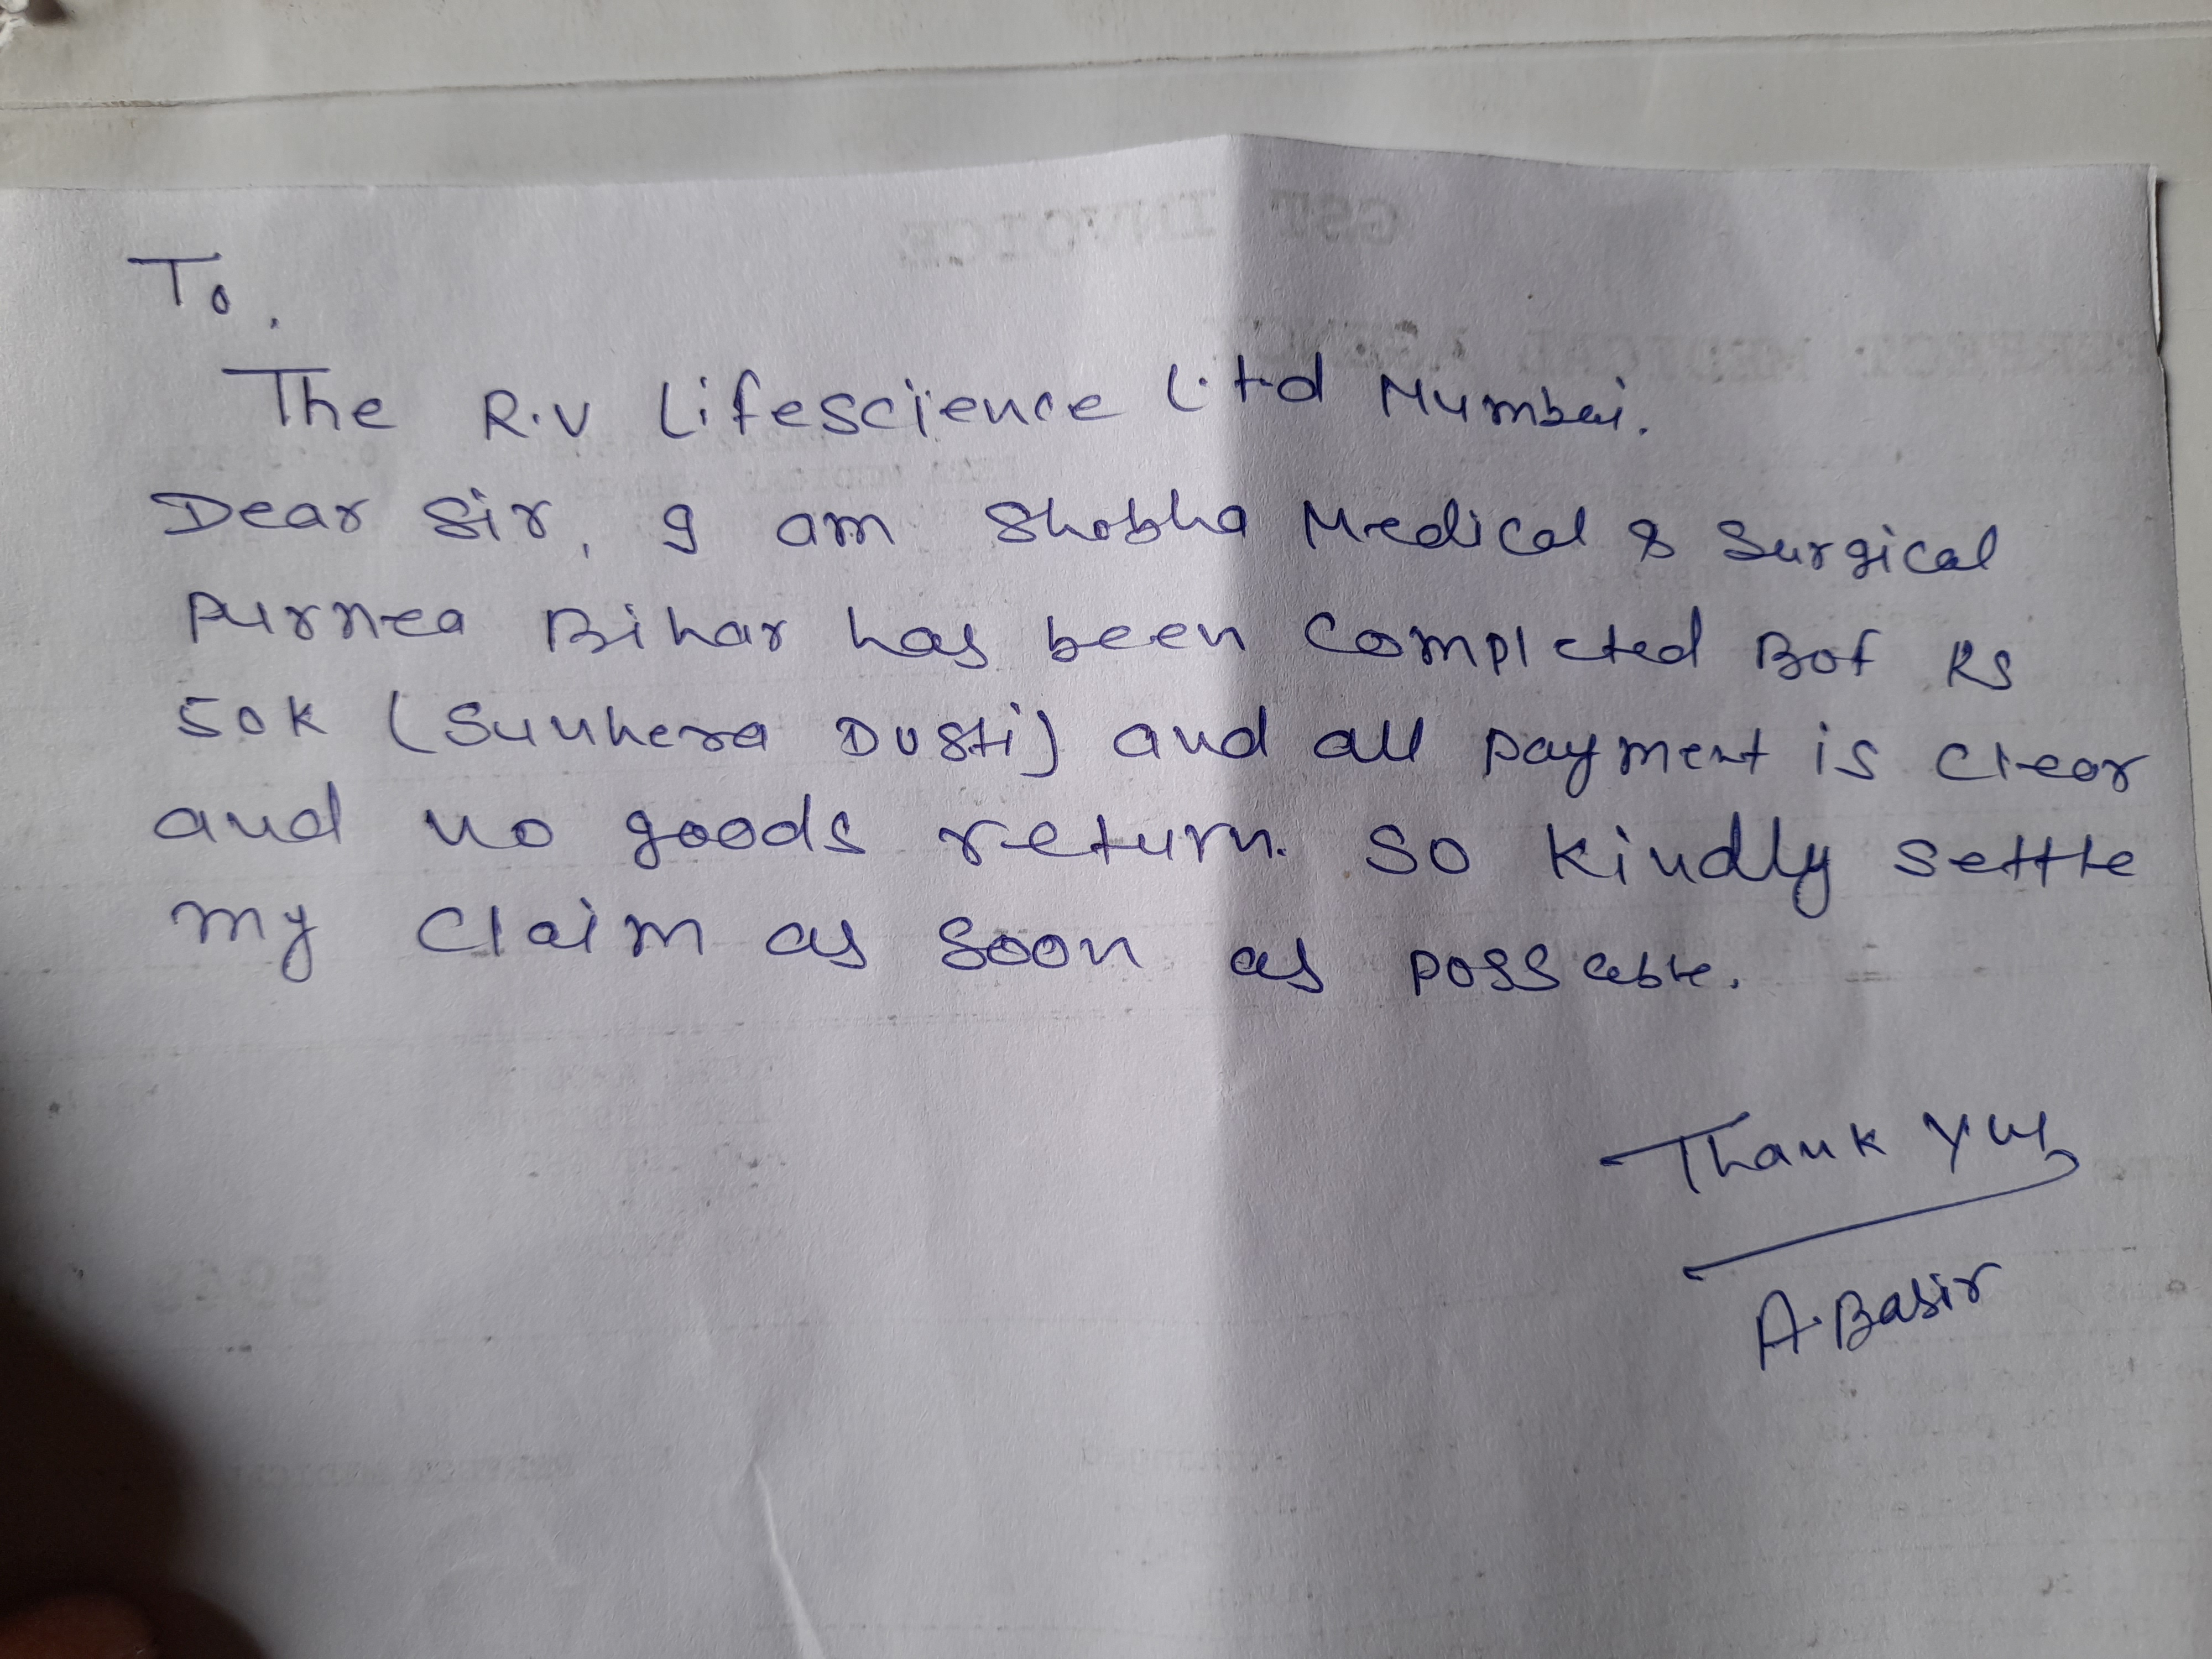 To,
The R.V Lifescience L.td Mumbai.
Dear Sir, I am Shobha Medical & Surgical
Purnea Bihar has been completed Bof Rs
50K (Sunhera Dusti) and all payment is clear
and no goods return. So kindly settle
my claim as soon as possable.
Thank you
A.Basir
GST INVOICE
MEDICAL AGENCY